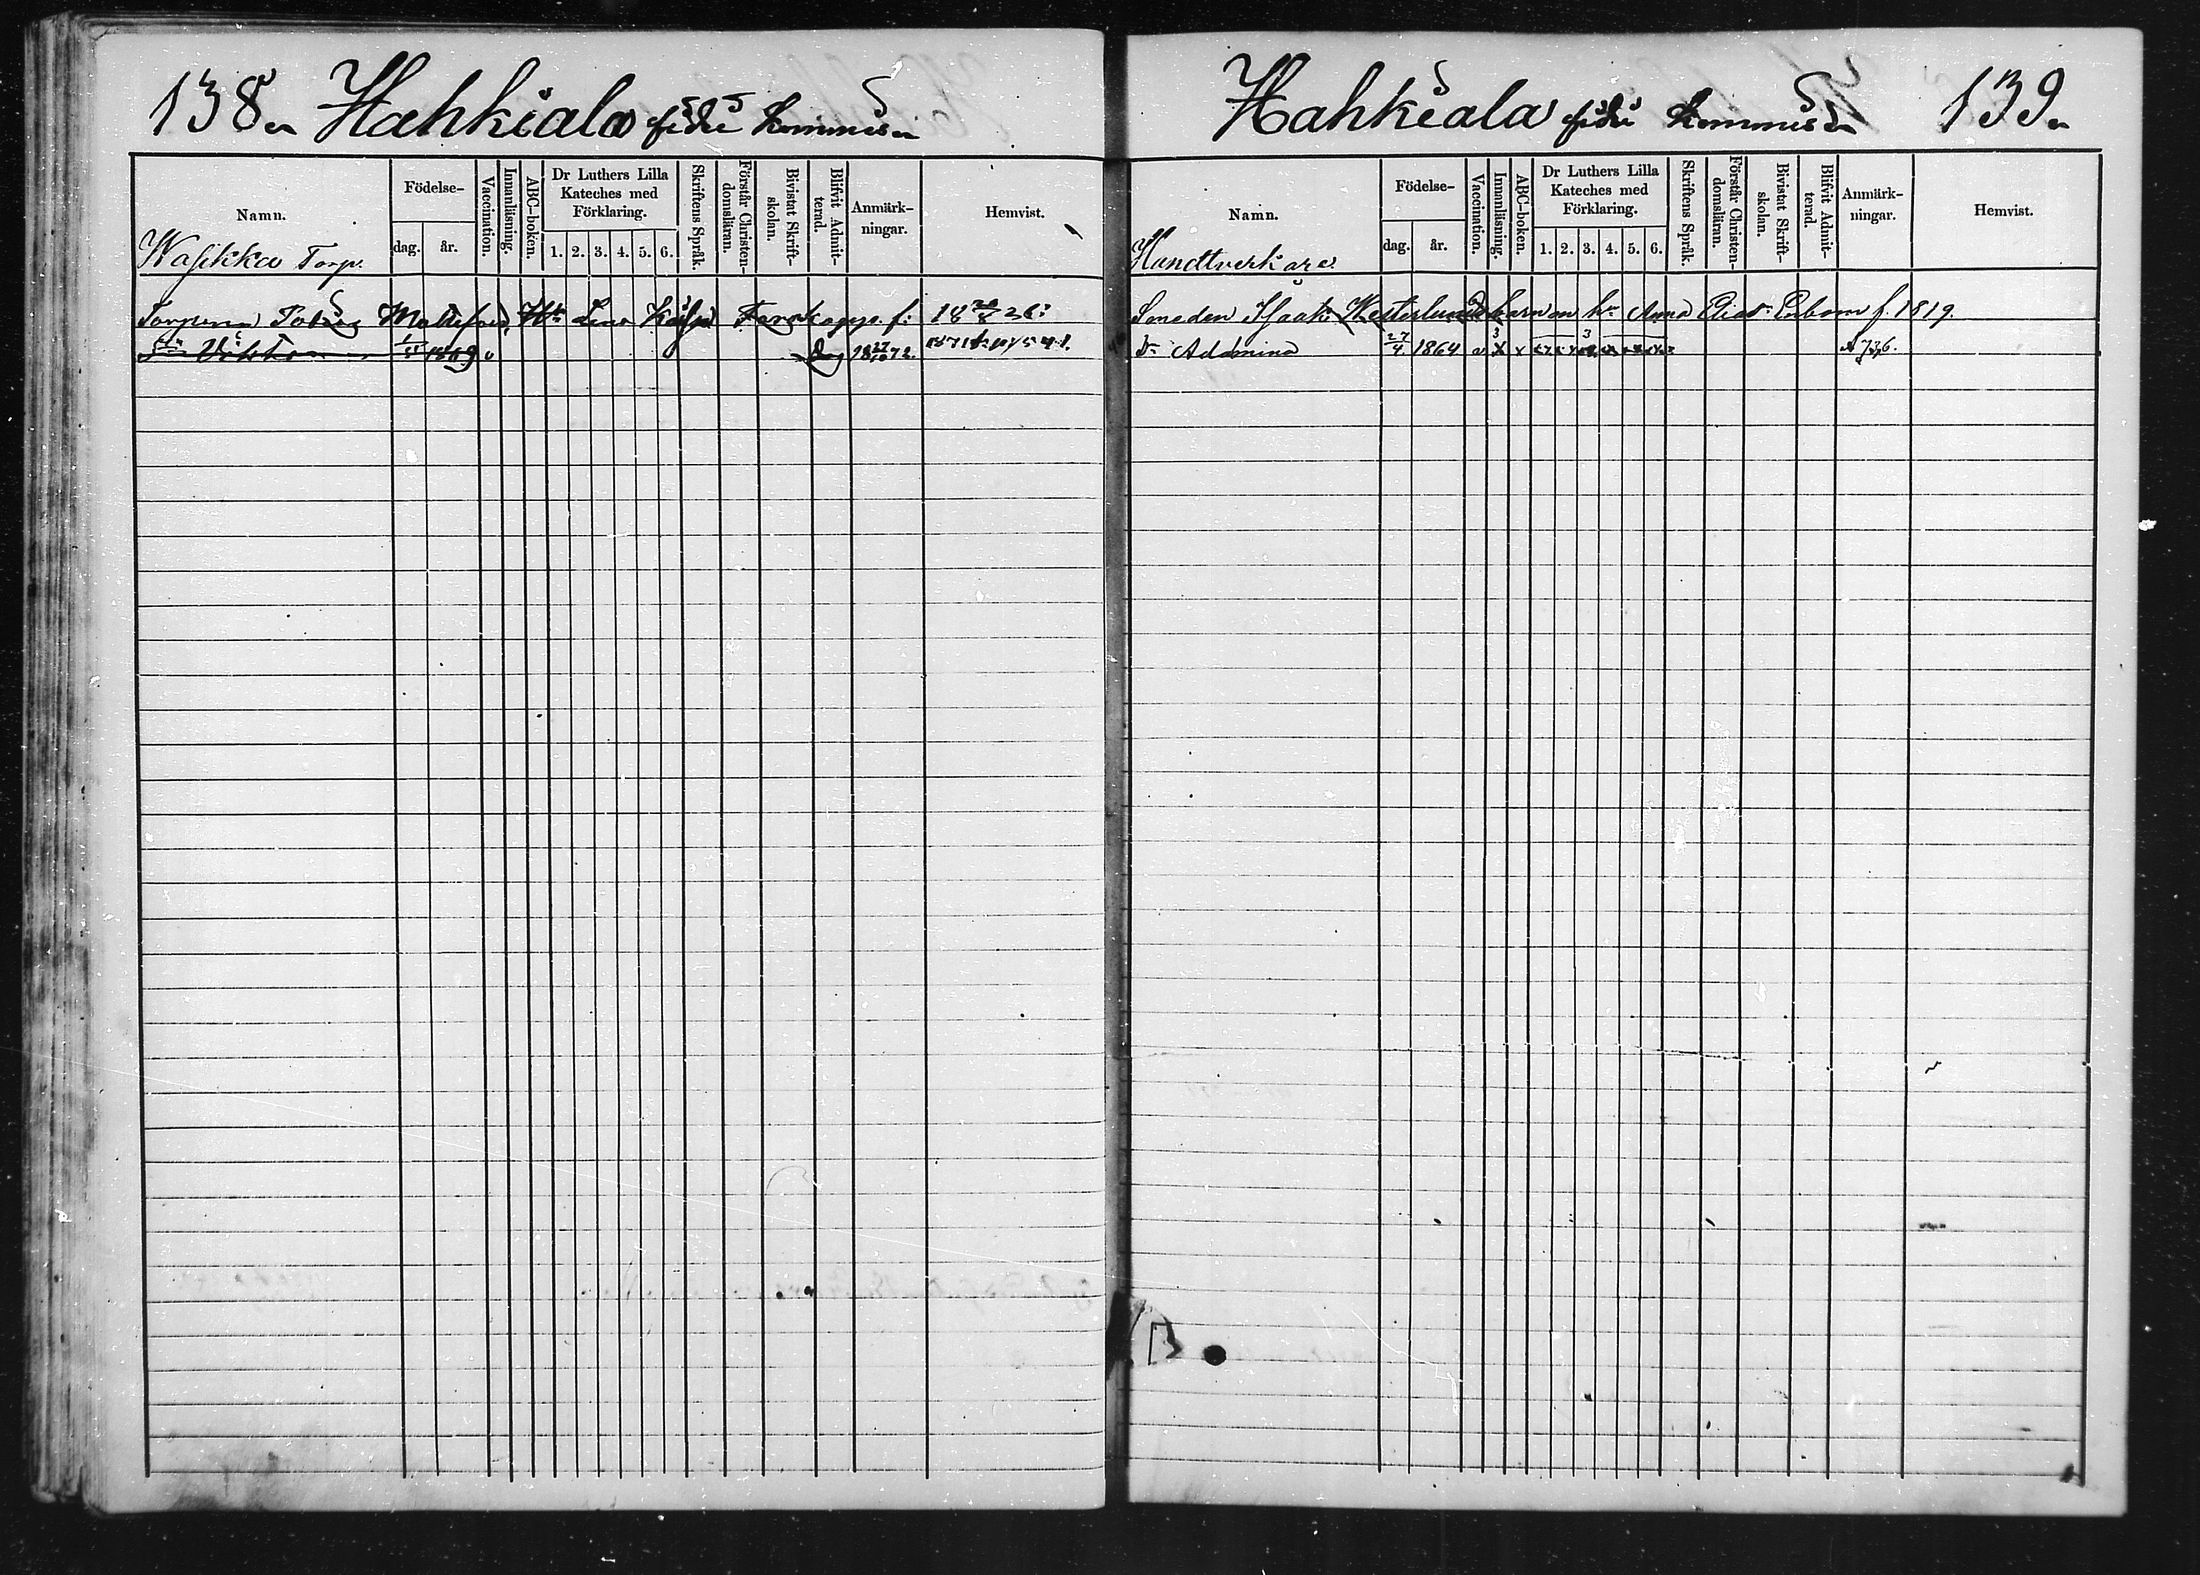 138. Hahkiala fidei kommiss
Namn.
Födelse-
dag.
år.
Vaccination.
Innanläsning.
ABC-boken.
Dr Luthers Lilla
Kateches med
Förklaring.
1. 2. 3. 4. 5. 6.
Skriftens Språk.
Förstår Christen-
domsläran.
Bivistat Skrift-
skolan.
Blifvit Admit-
terad.
Anmärk-
ningar.
Hemvist.
Wasikka Torp.
Torparen Tobias Mattsson, H Lena Kajsa f: 18 26:
Son Viktor 1869 v 18 72.
Hahkiala fidei kommiss 139.
Namn.
Födelse-
dag.
år.
Vaccination.
Innanläsning.
ABC-boken.
Dr Luthers Lilla
Kateches med
Förklaring.
1. 2. 3. 4. 5. 6.
Skriftens Språk.
Förstår Christen-
domsläran.
Bivistat Skrift-
skolan.
Blifvit Admit-
terad.
Anmärk-
ningar.
Hemvist.
Handtverkare.
Smeden Isaak Westerlunds barn Anna f. 1819.
Dr Adamina 27/4 1864 v